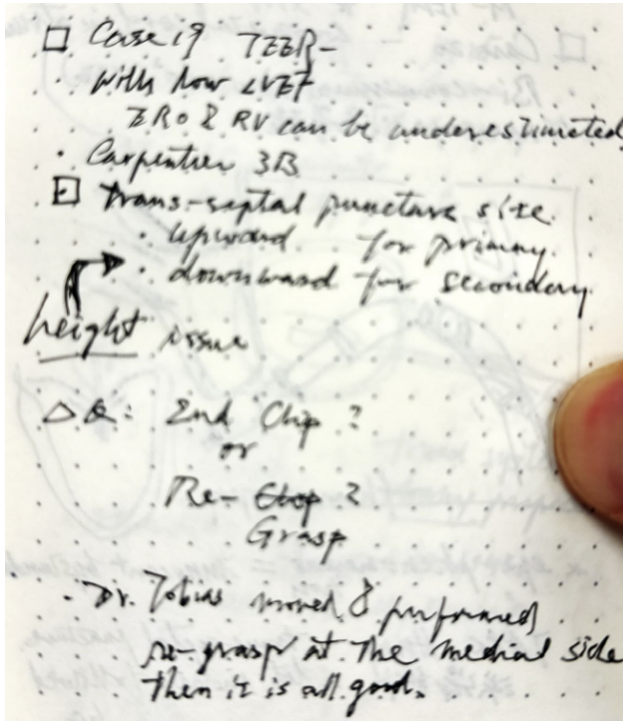 □ Case 19 TEER-
with low LVEF
ERO & RV can be underestimated
· Carpentier 3B
⊡ trans-septal puncture site
· upward for primary.
· downward for secondary
height issue
△ Q: End Clip ?
or
Re- Clop ?
Grasp
· Dr. Tobias moved & performed
re-grasp at the medial side
then it is all good.